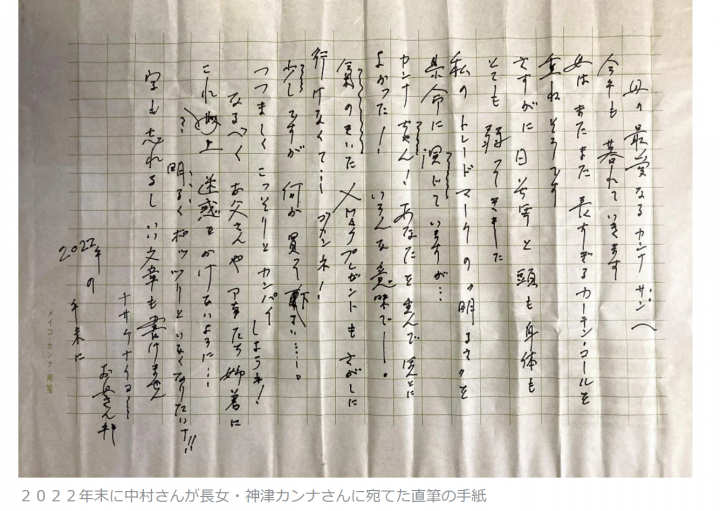 母の最愛なるカンナサンへ
今年も暮れていきます
母はまたまた長すぎるカーテン・コールを
重ねそうです
さすがに日 年 と頭も身体も
とても弱ってきました
私のトレードマークの〃明るさ〃を
懸命に演じていますが…
カンナちゃん!あなたを生んでほんとに
よかった!いろんな意味で―。
氣のきいたXmasプレゼントもさがしに
行けなくて…ゴメンネ!
少しですが何か買って下さい…。
つつましくこっそりとカンパイしようね!
なるべくお父さんや たち姉弟に
これ以上迷惑をかけないように…
明るくポックリといなくなりたいナ!!
字も忘れるしいい文章も書けません
ナサケナイヨー
2022年の年末に
お母さん
メイコ・カンナ用箋
２０２２年末に中村さんが長女・神津カンナさんに宛てた直筆の手紙